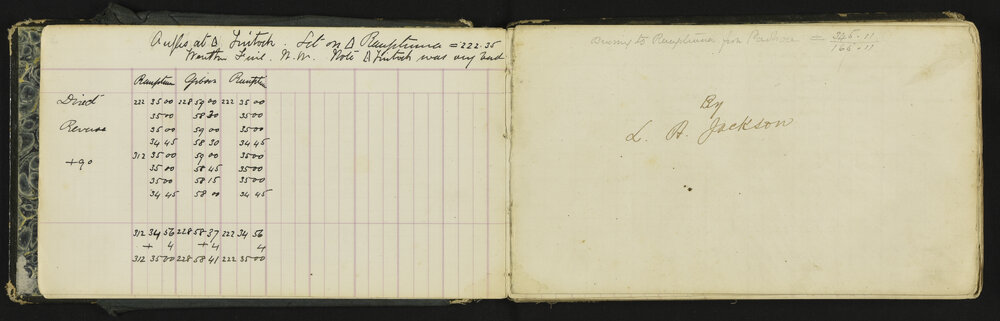 Angles at Δ Lintock. Set on Δ Rampturra = 222.35
Weather Fine. N.W. Note Δ Lintock was very bad
Gibson
Direct 222 35 00 228 59 00 222 35 00
35 00 58 30 35 00
Reverse 35 00 59 00 35 00
34 45 58 30 34 45
+90 312 35 00 59 00 35 00
35 00 58 45 35 00
35 00 58 15 35 00
34 45 58 00 34 45
312 34 56 228 58 37 222 34 56
+ 4 + 4 4
312 35 00 228 58 41 222 35 00
to from = 345.11
165.11
By
L. A. Jackson